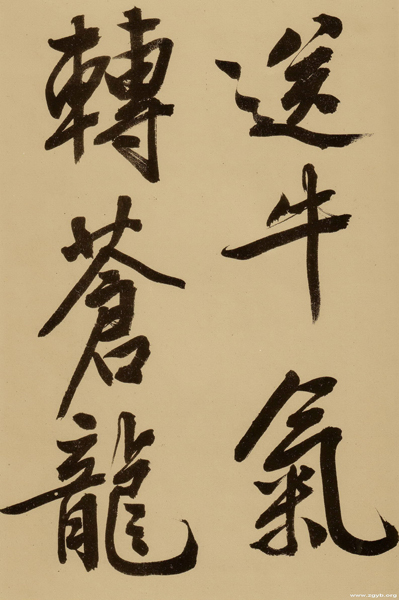 送牛氣
轉蒼龍
www.zgyb.org